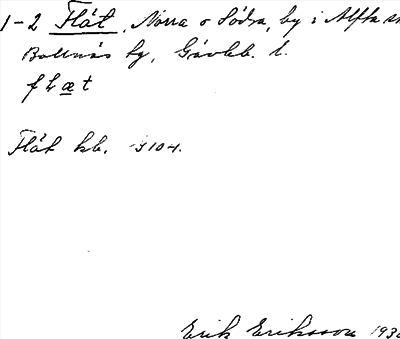 1-2 Flät, Norra o Södra, by i Alfta sn
Bollnäs kg, Gävleb. l.
flæt
Flät kb. 3104.
Erik Eriksson 193